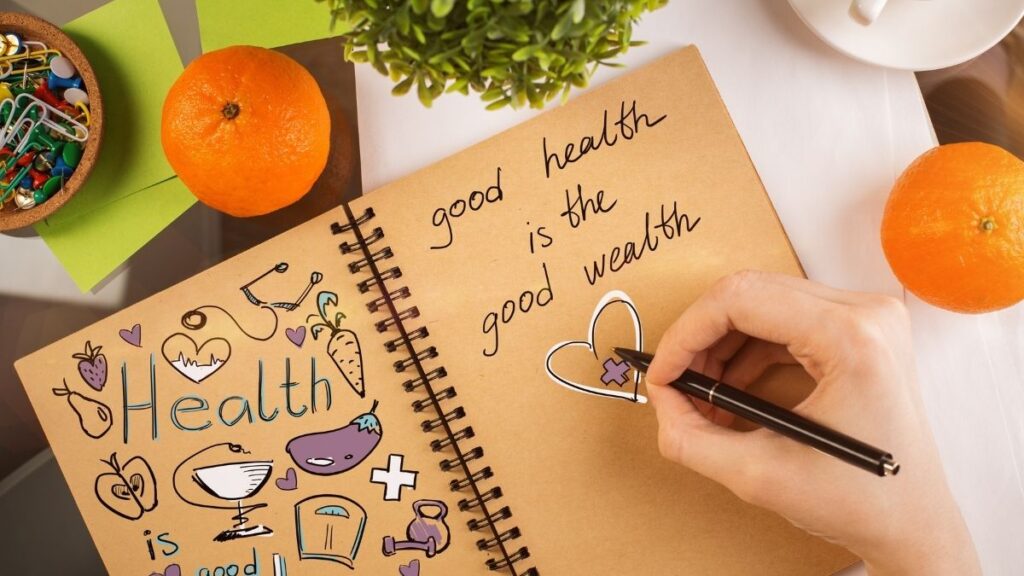 Health
is
good
good health
is the
good wealth